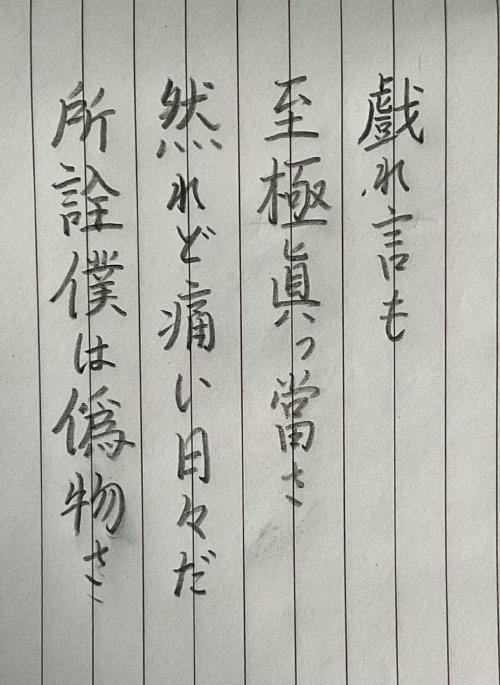 戲れ言も
至極眞っ當さ
然れど痛い日々だ
所詮僕は僞物さ